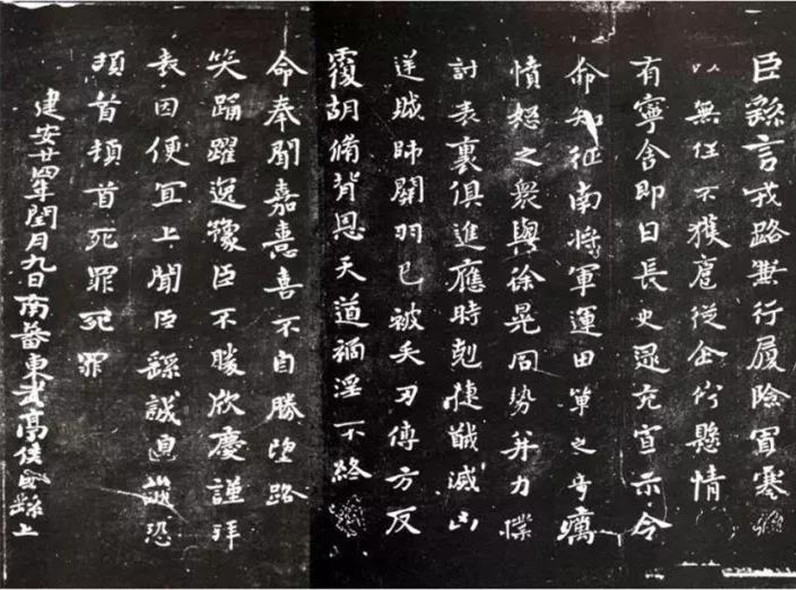 臣繇言戎路兼行履險冒寒臣
以無任不獲扈從企佇懸情
有寧舍即日長史逯充宣示令
命知征南將軍運田單之奇厲
憤怒之衆與徐晃同勢并力撲
討表裏俱進應時剋捷馘滅凶
逆賊帥關羽已被矢刃傅方反
覆胡脩背恩天道禍淫不終
命奉聞嘉憙喜不自勝望路
笑踊躍逸豫臣不勝欣慶謹拜
表因便宜上聞臣繇誠惶誠恐
頓首頓首死罪死罪
建安廿四年閏月九日南蕃東武亭侯臣繇上